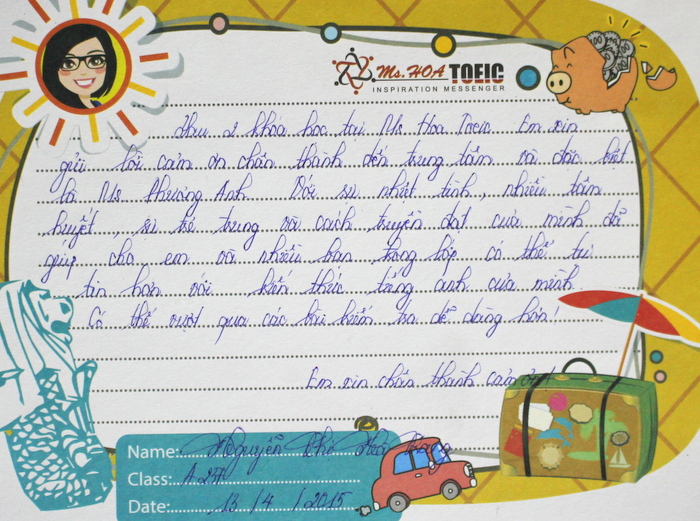 Ms. HOA TOEIC
INSPIRATION MESSENGER
Sau 2 khóa học tại Ms Hoa Toeic Em xin
gửi lời cảm ơn chân thành đến trung tâm và đặc biệt
là Ms Phương Anh Với sự nhiệt tình, nhiều tâm
huyết, sự trẻ trung và cách truyền đạt của mình đã
giúp cho em và nhiều bạn trong lớp có thể tự
tin hơn với kiến thức tiếng anh của mình
Có thể vượt qua các bài kiểm tra dễ dàng hơn!
Em xin chân thành cảm ơn!
Name: Nguyễn Thị
Class: A 257
Date: 13 / 4 / 2015